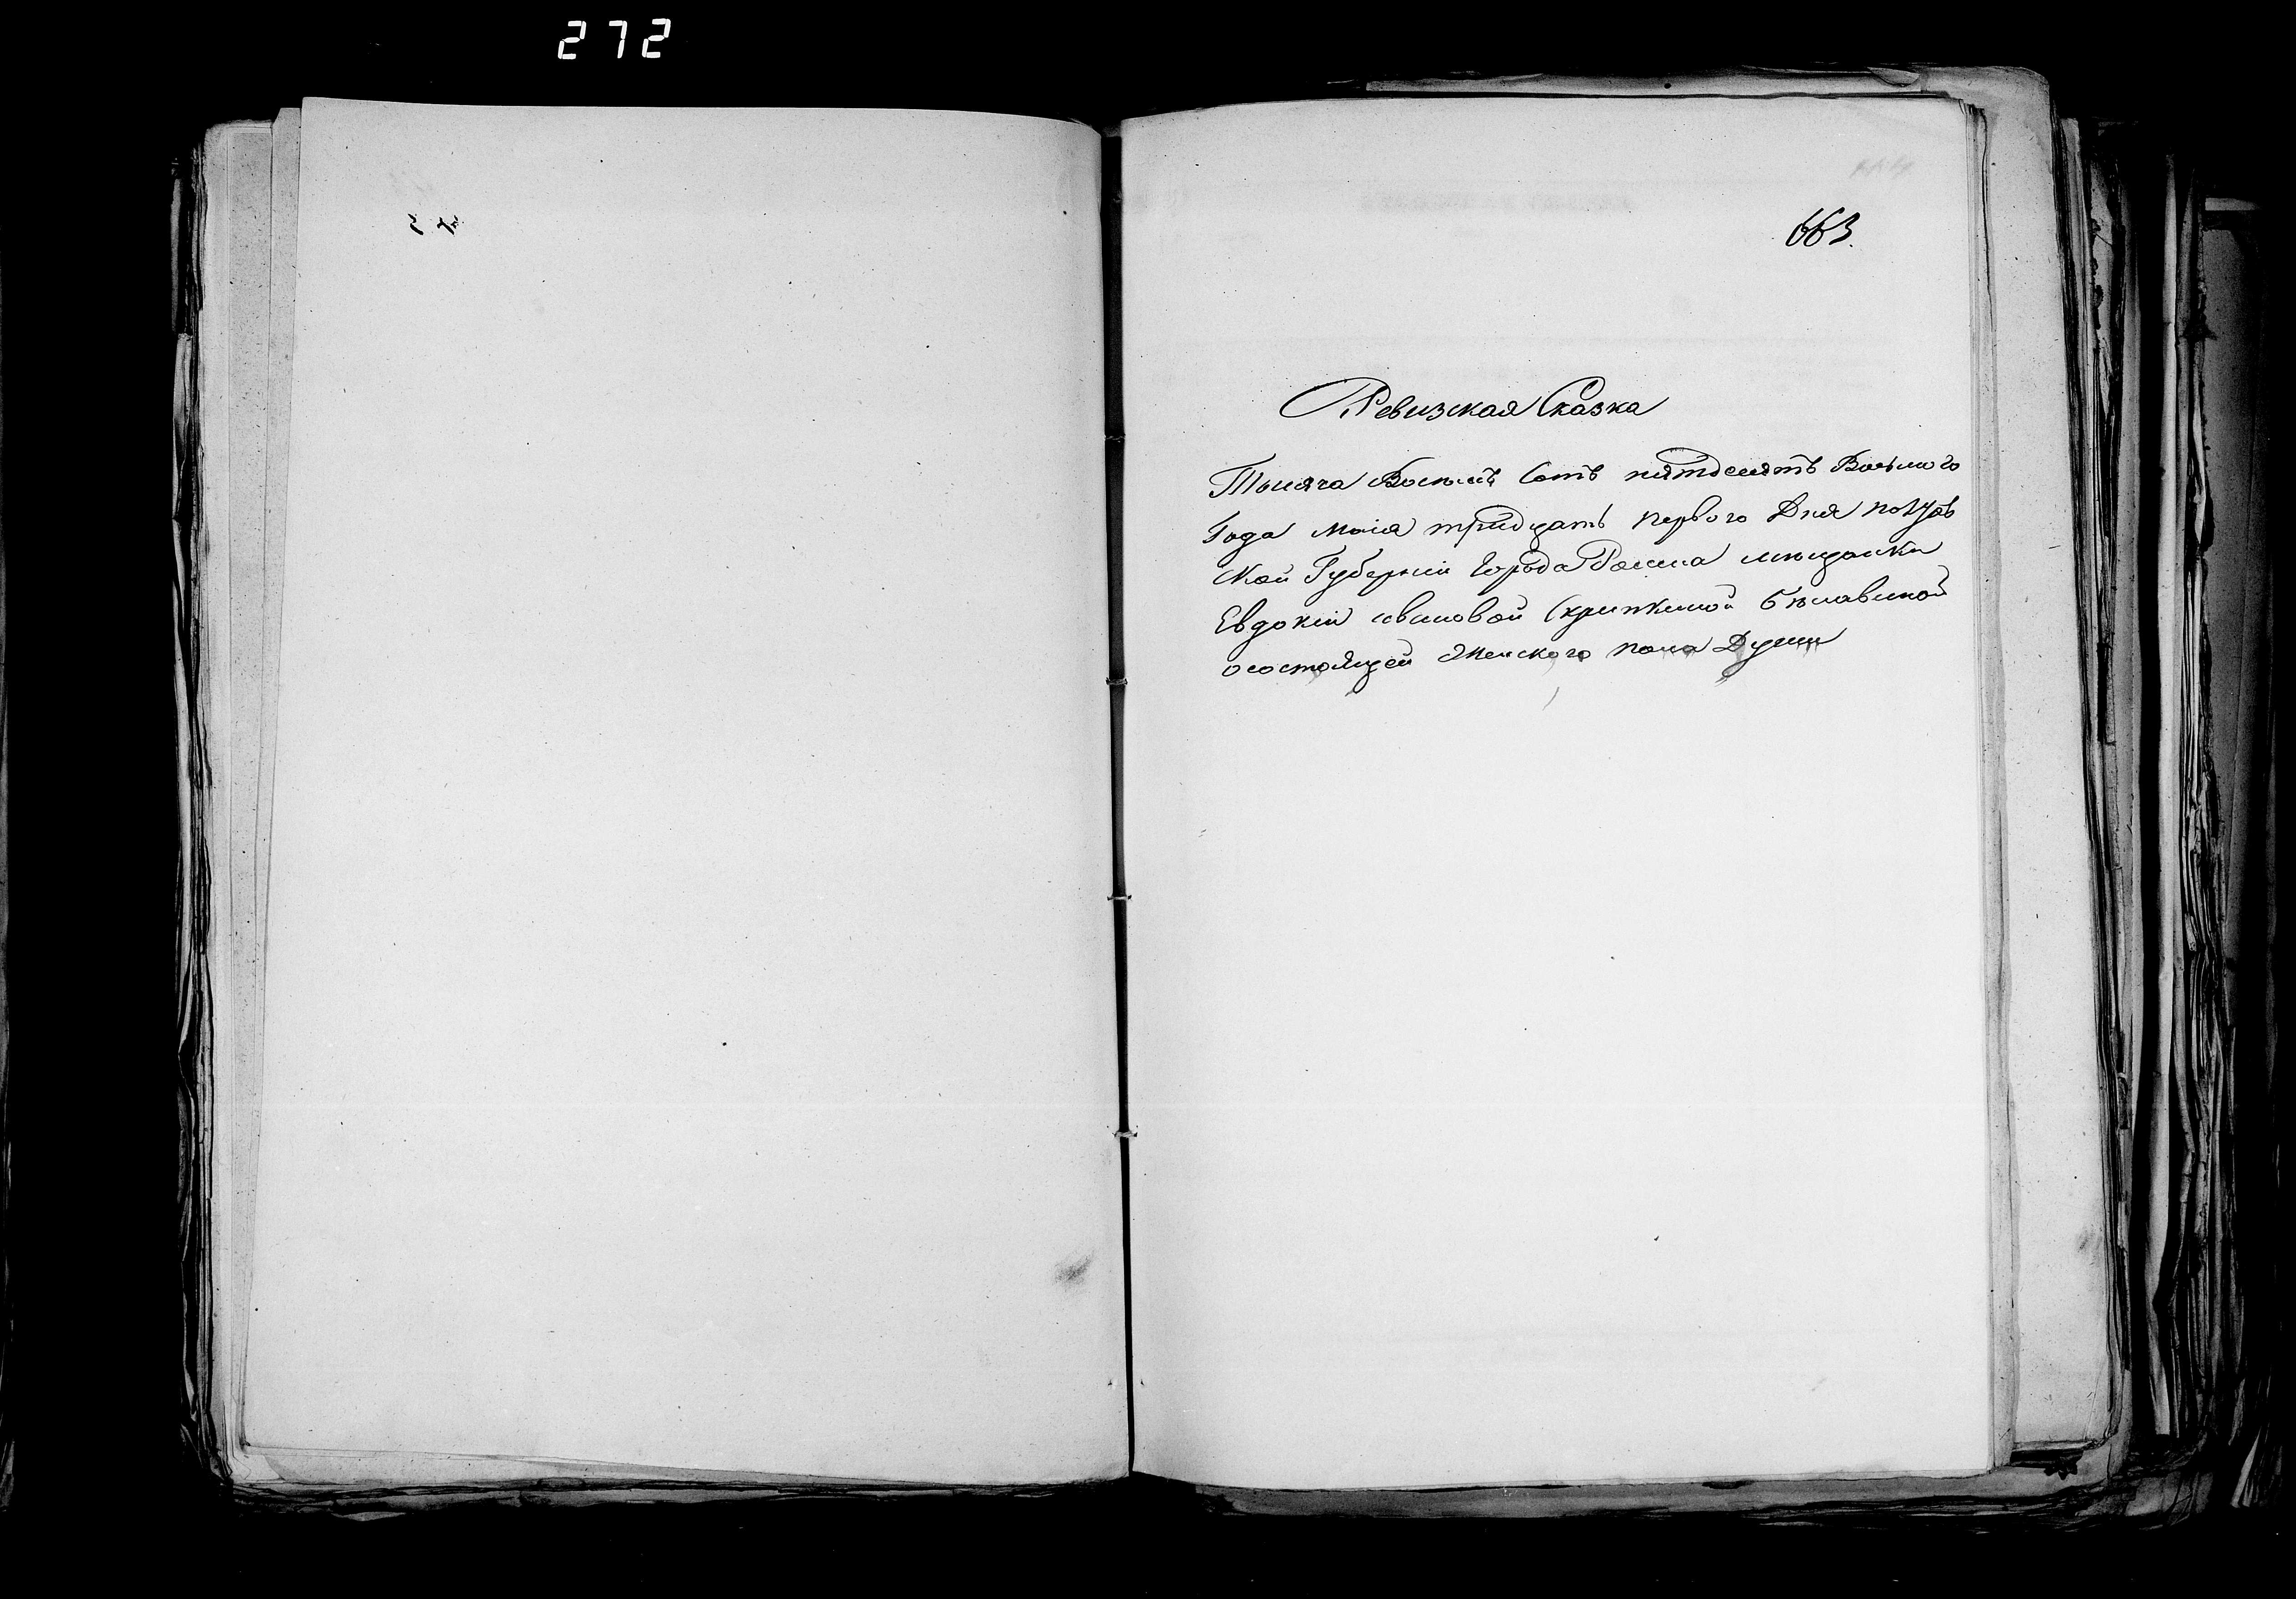 272
663.
Ревизская Сказка
Тысяча Восемь Сотъ пятдесятъ Восьмого
Года Маія тридцать первого Дня
Кой Губерніи Города мещанки
Евдокіи ивановой
осостоящей Женского пола Души